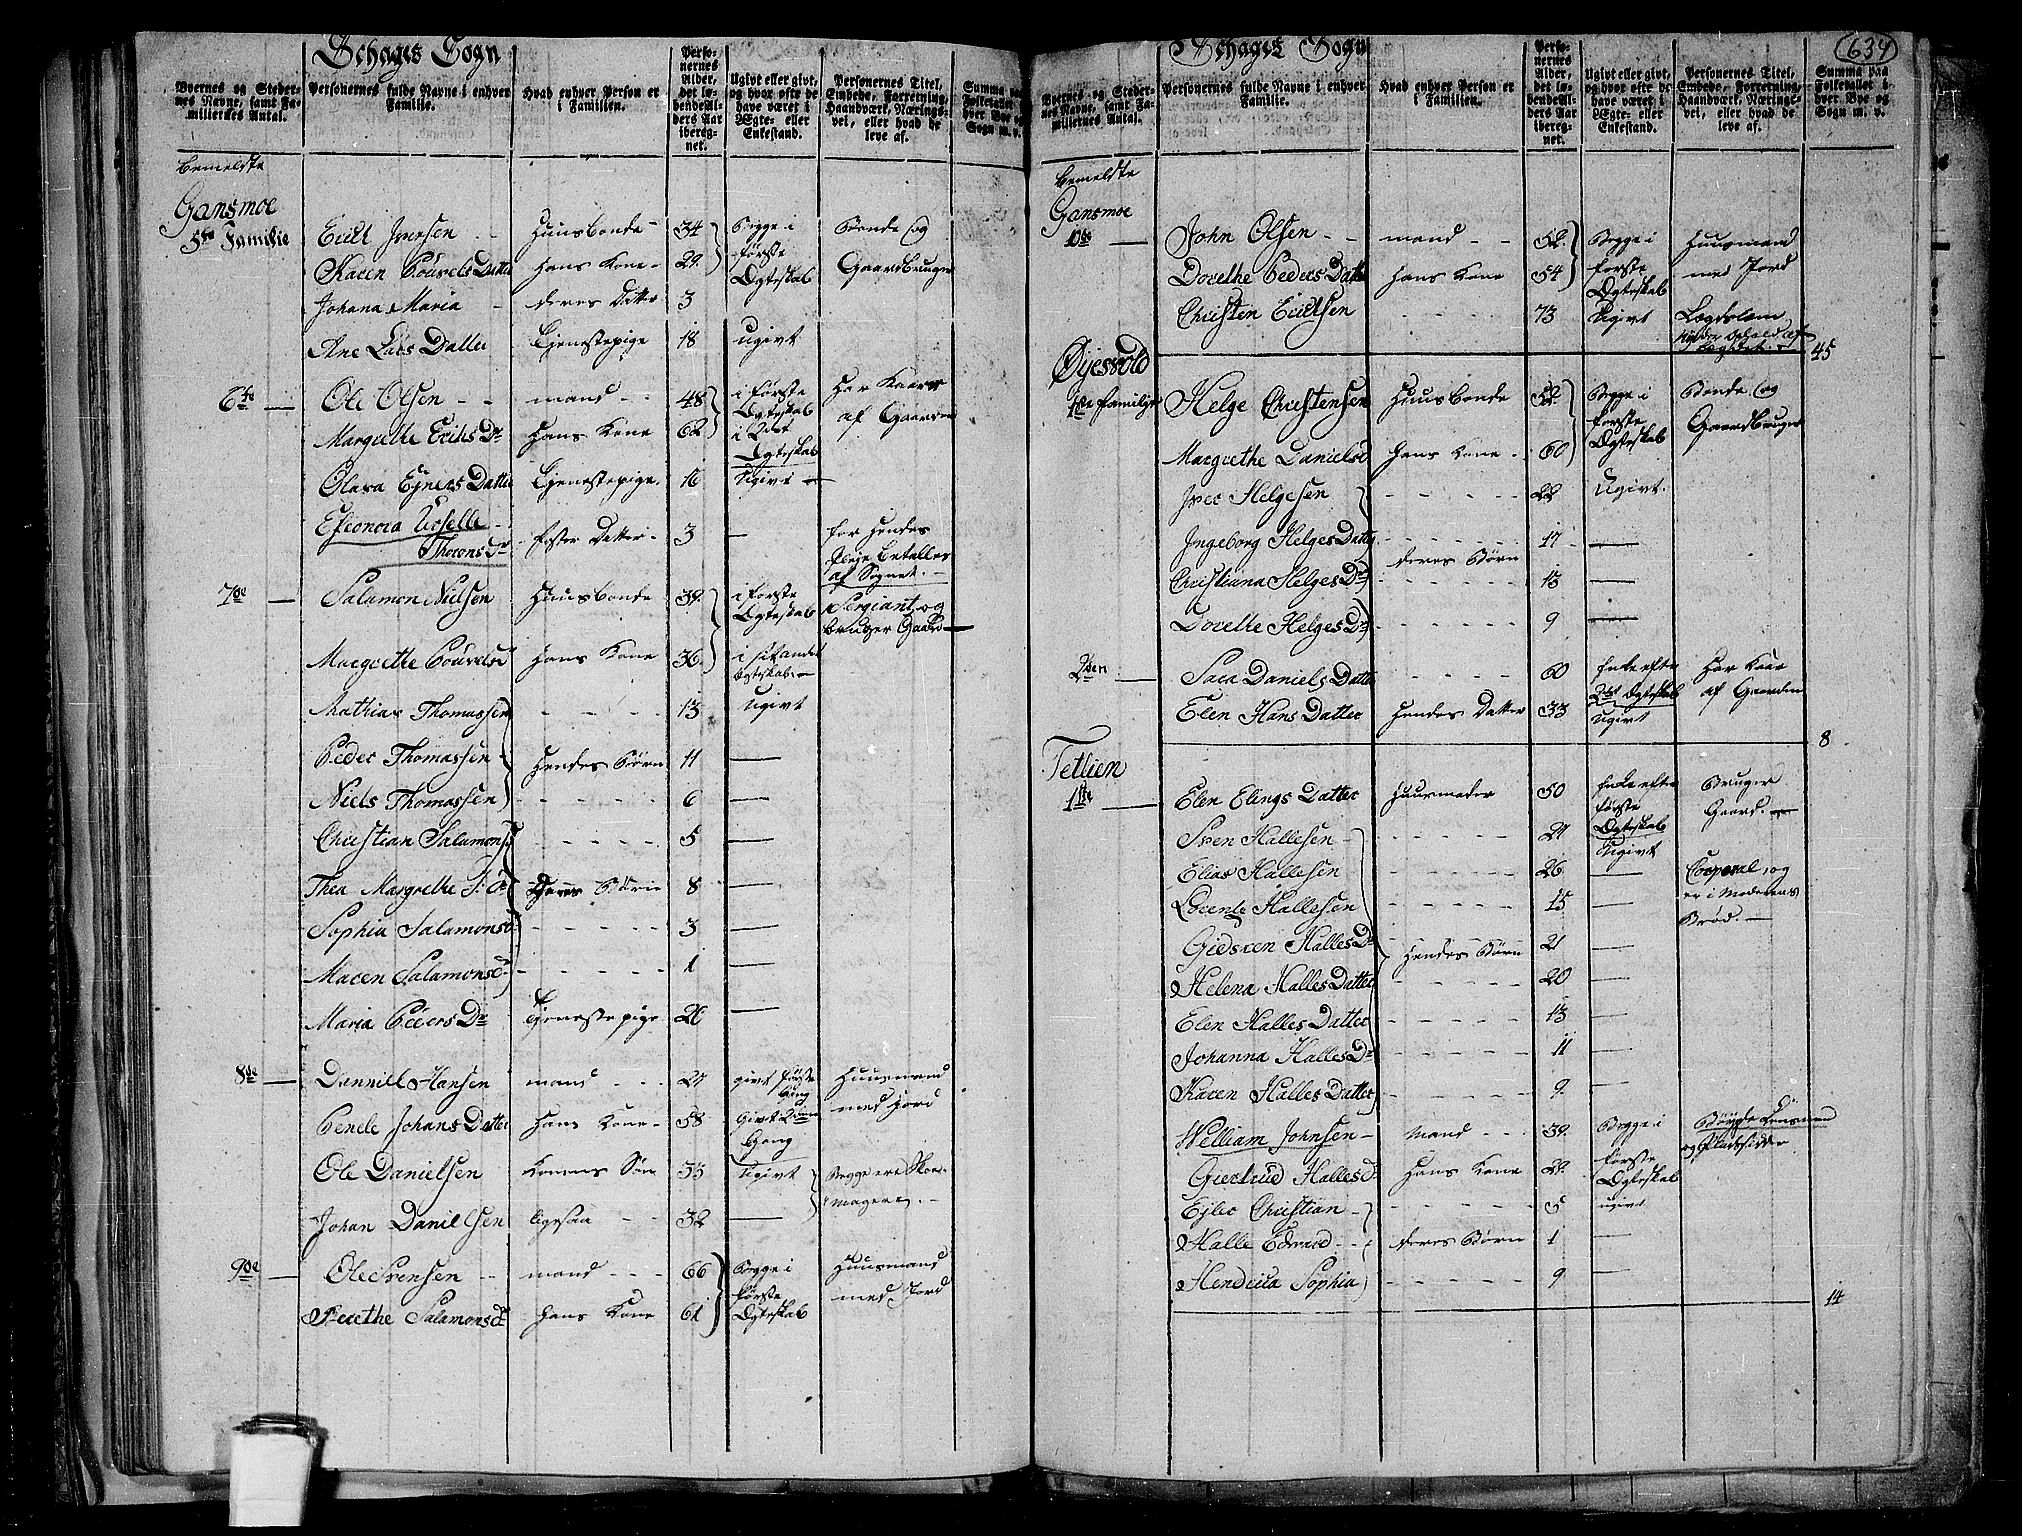 Schages Sogn
Byernes og Steder-
nes Navne, samt Fa-
miliernes Antal.
Personernes fulde Navne i enhver
Familie.
Hvad enhver Person er
i Familien.
Perso-
nernes
Alder,
det lø-
bende Al-
ders Aar
ibereg-
net.
Ugivt eller givt,
og hvor ofte de
have været i
Ægte- eller
Enkestand.
Personernes Titel,
Embede, Forretning,
Haandværk, Nærings-
vei, eller hvad de
leve af.
Summa paa
Folketallet i
hver Bye og
Sogn m. v.
bemeldte
Gansmoe
5te Familie Eült Iversen Huusbonde 34 Begge i Bonde og
Karen Poüvels Datter hans Kone 29 første Gaardbruger
Ægteskab
Johana Maria deres Datter 3
Ane Lars Datter Tjenestepige 18 ugivt
6te Ole Olsen mand 48 i første har Kaar
Ægteskab af Gaarden
Margrethe Erichs Dr hans Kone 62 i 2det
Ægteskab
Olava Ejners Datter Tjenestepige 16 Ugivt
Eleonora Ürselle
Thorons Dr foster Datter 3 for hendes
Pleje betalles
af Sognet.
7de Salamon Nielsen Huusbonde 39 i første Sergiant, og
Ægteskab bruger Gaard
Margrethe Poüvelsd hans Kone 36 i
Ægteskab
Mathias Thomassen 13 ugivt
Peder Thomassen hendes Børn 11
Niels Thomassen 6
Christian Salamons 5
Thea Margrethe S. D deres Børn 8
Sophia Salamonsd 3
Maren Salamonsd 1
Maria Peders Dr Tjenestepige 26
8de Danniel Hansen mand 27 givt første Huusmand
Gang med Jord
Pernele Johans Datter hans Kone 58 Givt 2den
Gang
Ole Danielsen Konens Søn 33 Ugivt Begge ere Skoe-
magere.
Johan Danielsen ligesaa 32
9de Ole Svensen mand 66 Begge i Huusmand
første med Jord
Berethe Salamonsd hans Kone 61 Ægteskab
637
Schages Sogn
Byernes og Steder-
nes Navne, samt Fa-
miliernes Antal.
Personernes fulde Navne i enhver
Familie.
Hvad enhver Person er
i Familien.
Perso-
nernes
Alder,
det lø-
bende Al-
ders Aar
ibereg-
net.
Ugivt eller givt,
og hvor ofte de
have været i
Ægte- eller
Enkestand.
Personernes Titel,
Embede, Forretning,
Haandværk, Nærings-
vei, eller hvad de
leve af.
Summa paa
Folketallet i
hver Bye og
Sogn m. v.
bemeldte
Gansmoe
10de John Olsen mand 52 Begge i Huusmand
Dorethe Peders Datter hans Kone 54 første med Jord
Ægteskab
Christen Eültsen 73 Ugivt Lægdslem
nyder ophold af
Lægdet
45
Øyesvold
1ste Familje Helge Christensen Huusbonde 52 Begge i Bonde og
første Gaardbruger
Margrethe Danielsd hans Kone 60 Ægteskab
Iver Helgesen 22 Ugivt.
Ingeborg Helges Datter 17
deres Børn
Christiana Helges Dr 13
Dorethe Helges Dr 9
2den Sara Daniels Datter 60 Enke efter har Kaar
2det Ægteskab af Gaarden
Elen Hans Datter hendes Datter 33 Ugivt
8
Tetlien
1ste Elen Elings Datter Huusmoder 50 Enke efter Bruger
første Gaard.
Ægteskab
Sven Hallesen 27 Ugivt
Elias Hallesen 26 Corporal, og
er i Moderens
Brød.
Lorentz Hallesen 15
Gidsken Halles Dr 21
hendes Børn
Helena Halles Datter 20
Elen Halles Datter 13
Johanna Halles Dr 11
Karen Halles Datter 9
Welliam Johnsen mand 39 Begge i Bøygde Lensmand
og Pladsidder
Giertrud Hallesd hans Kone 29 første
Ægteskab
Ejler Christian 5 ugivt
Halle Edvard deres Børn 1
Hendrica Sophia 9
14